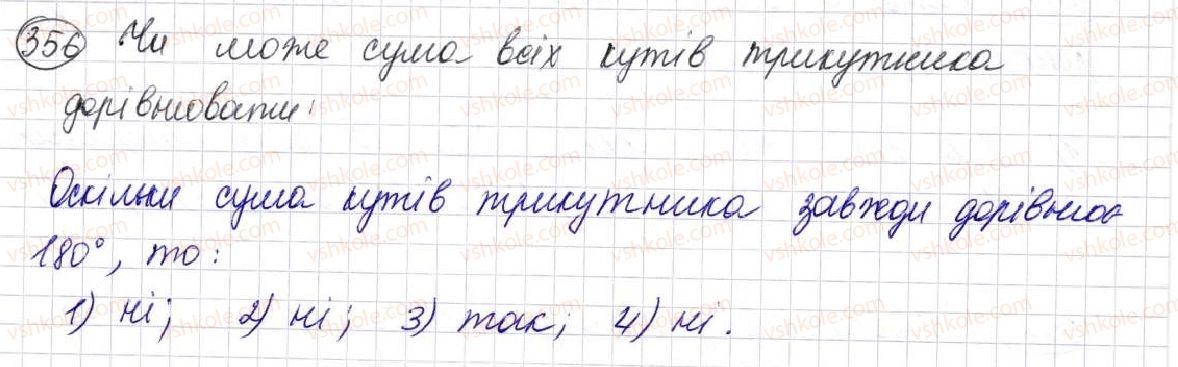 356 Чи може сума всіх кутів трикутника
дорівнювати:
Оскільки сума кутів трикутника завжди дорівнює
180°, то:
1) ні; 2) ні; 3) так; 4) ні.